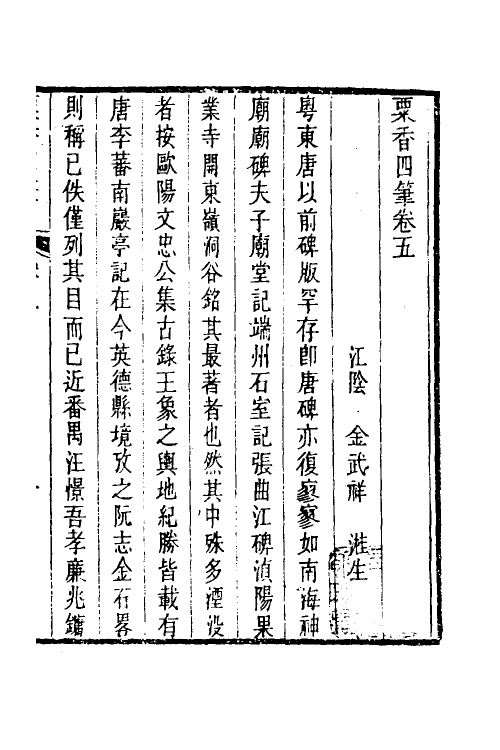 粟香四筆卷五
江陰 金武祥 溎生
粵東唐以前碑版罕存卽唐碑亦復寥寥如南海神
廟廟碑夫子廟堂記端州石室記張曲江碑湞陽果
業寺開東嶺洞谷銘其最著者也然其中殊多湮没
者按歐陽文忠公集古錄王象之輿地紀勝皆載有
唐李蕃南巖亭記在今英德縣境攷之阮志金石畧
則稱已佚僅列其目而已近番禺汪憬吾孝廉兆鏞